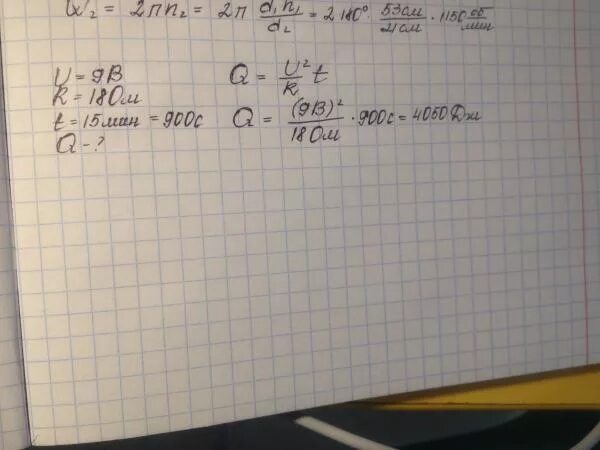 ω₂ = 2πn₂ = 2π d₁n₁/d₂ = 2·180°· 53см/21см · 1150 об/мин
U = 9В
R = 18Ом
t = 15мин = 900с
Q - ?
Q = U²/R t
Q = (9В)²/18Ом · 900с = 4050Дж